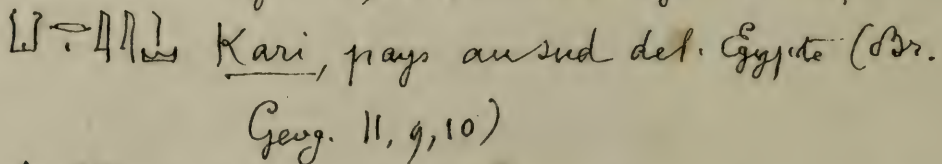 Kari, pays au sud de l'Egypte (Br.
Geog. II, 9, 10)